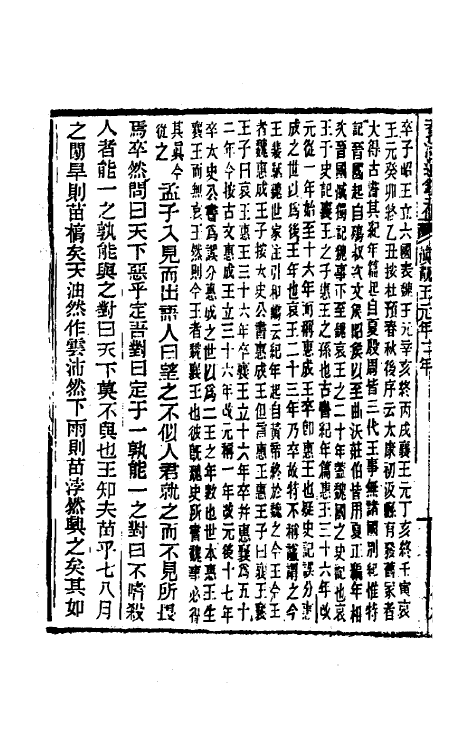 慎靚王元年二年
卒子昭王立六國表魏惠王元辛亥終丙戌襄王元丁亥終壬寅哀
王元癸卯終乙丑按杜預春秋後序云太康初汲縣有發舊冢者
大得古書其紀年篇起自夏殷周皆三代王事無諸國別紀惟特
記晉國起自殤叔次文侯昭侯以至曲沃莊伯皆用夏正編年相
次晉國滅獨記魏事下至魏哀王之二十年蓋魏國之史記也哀
王于史記襄王之子惠王之孫也古書紀年篇惠王三十六年改
元從一年始至十六年而稱惠成王卒即惠王也疑史記誤分惠
成之世以爲後王年也哀王二十三年乃卒故特不稱謚謂之今
王裴駰魏世家注引和嶠云紀年起自黃帝終於魏之今王今王
者魏惠成王子按太史公書惠成王但言惠王惠王子曰襄王襄
王子曰哀王惠王三十六年卒襄王立十六年卒并惠襄爲五十
二年今按古文惠成王立三十六年改元稱一年改元後十七年
卒太史公書爲誤分惠成之世以爲二王之年數也世本惠王生
襄王而無哀王然則今王者魏襄王也彼既魏史所書魏事必得
其眞今從之 孟子入見而出語人曰望之不似人君就之而不見所畏
焉卒然問曰天下惡乎定吾對曰定于一孰能一之對曰不嗜殺
人者能一之孰能與之對曰天下莫不與也王知夫苗乎七八月
之間旱則苗槁矣天油然作雲沛然下雨則苗浡然興之矣其如